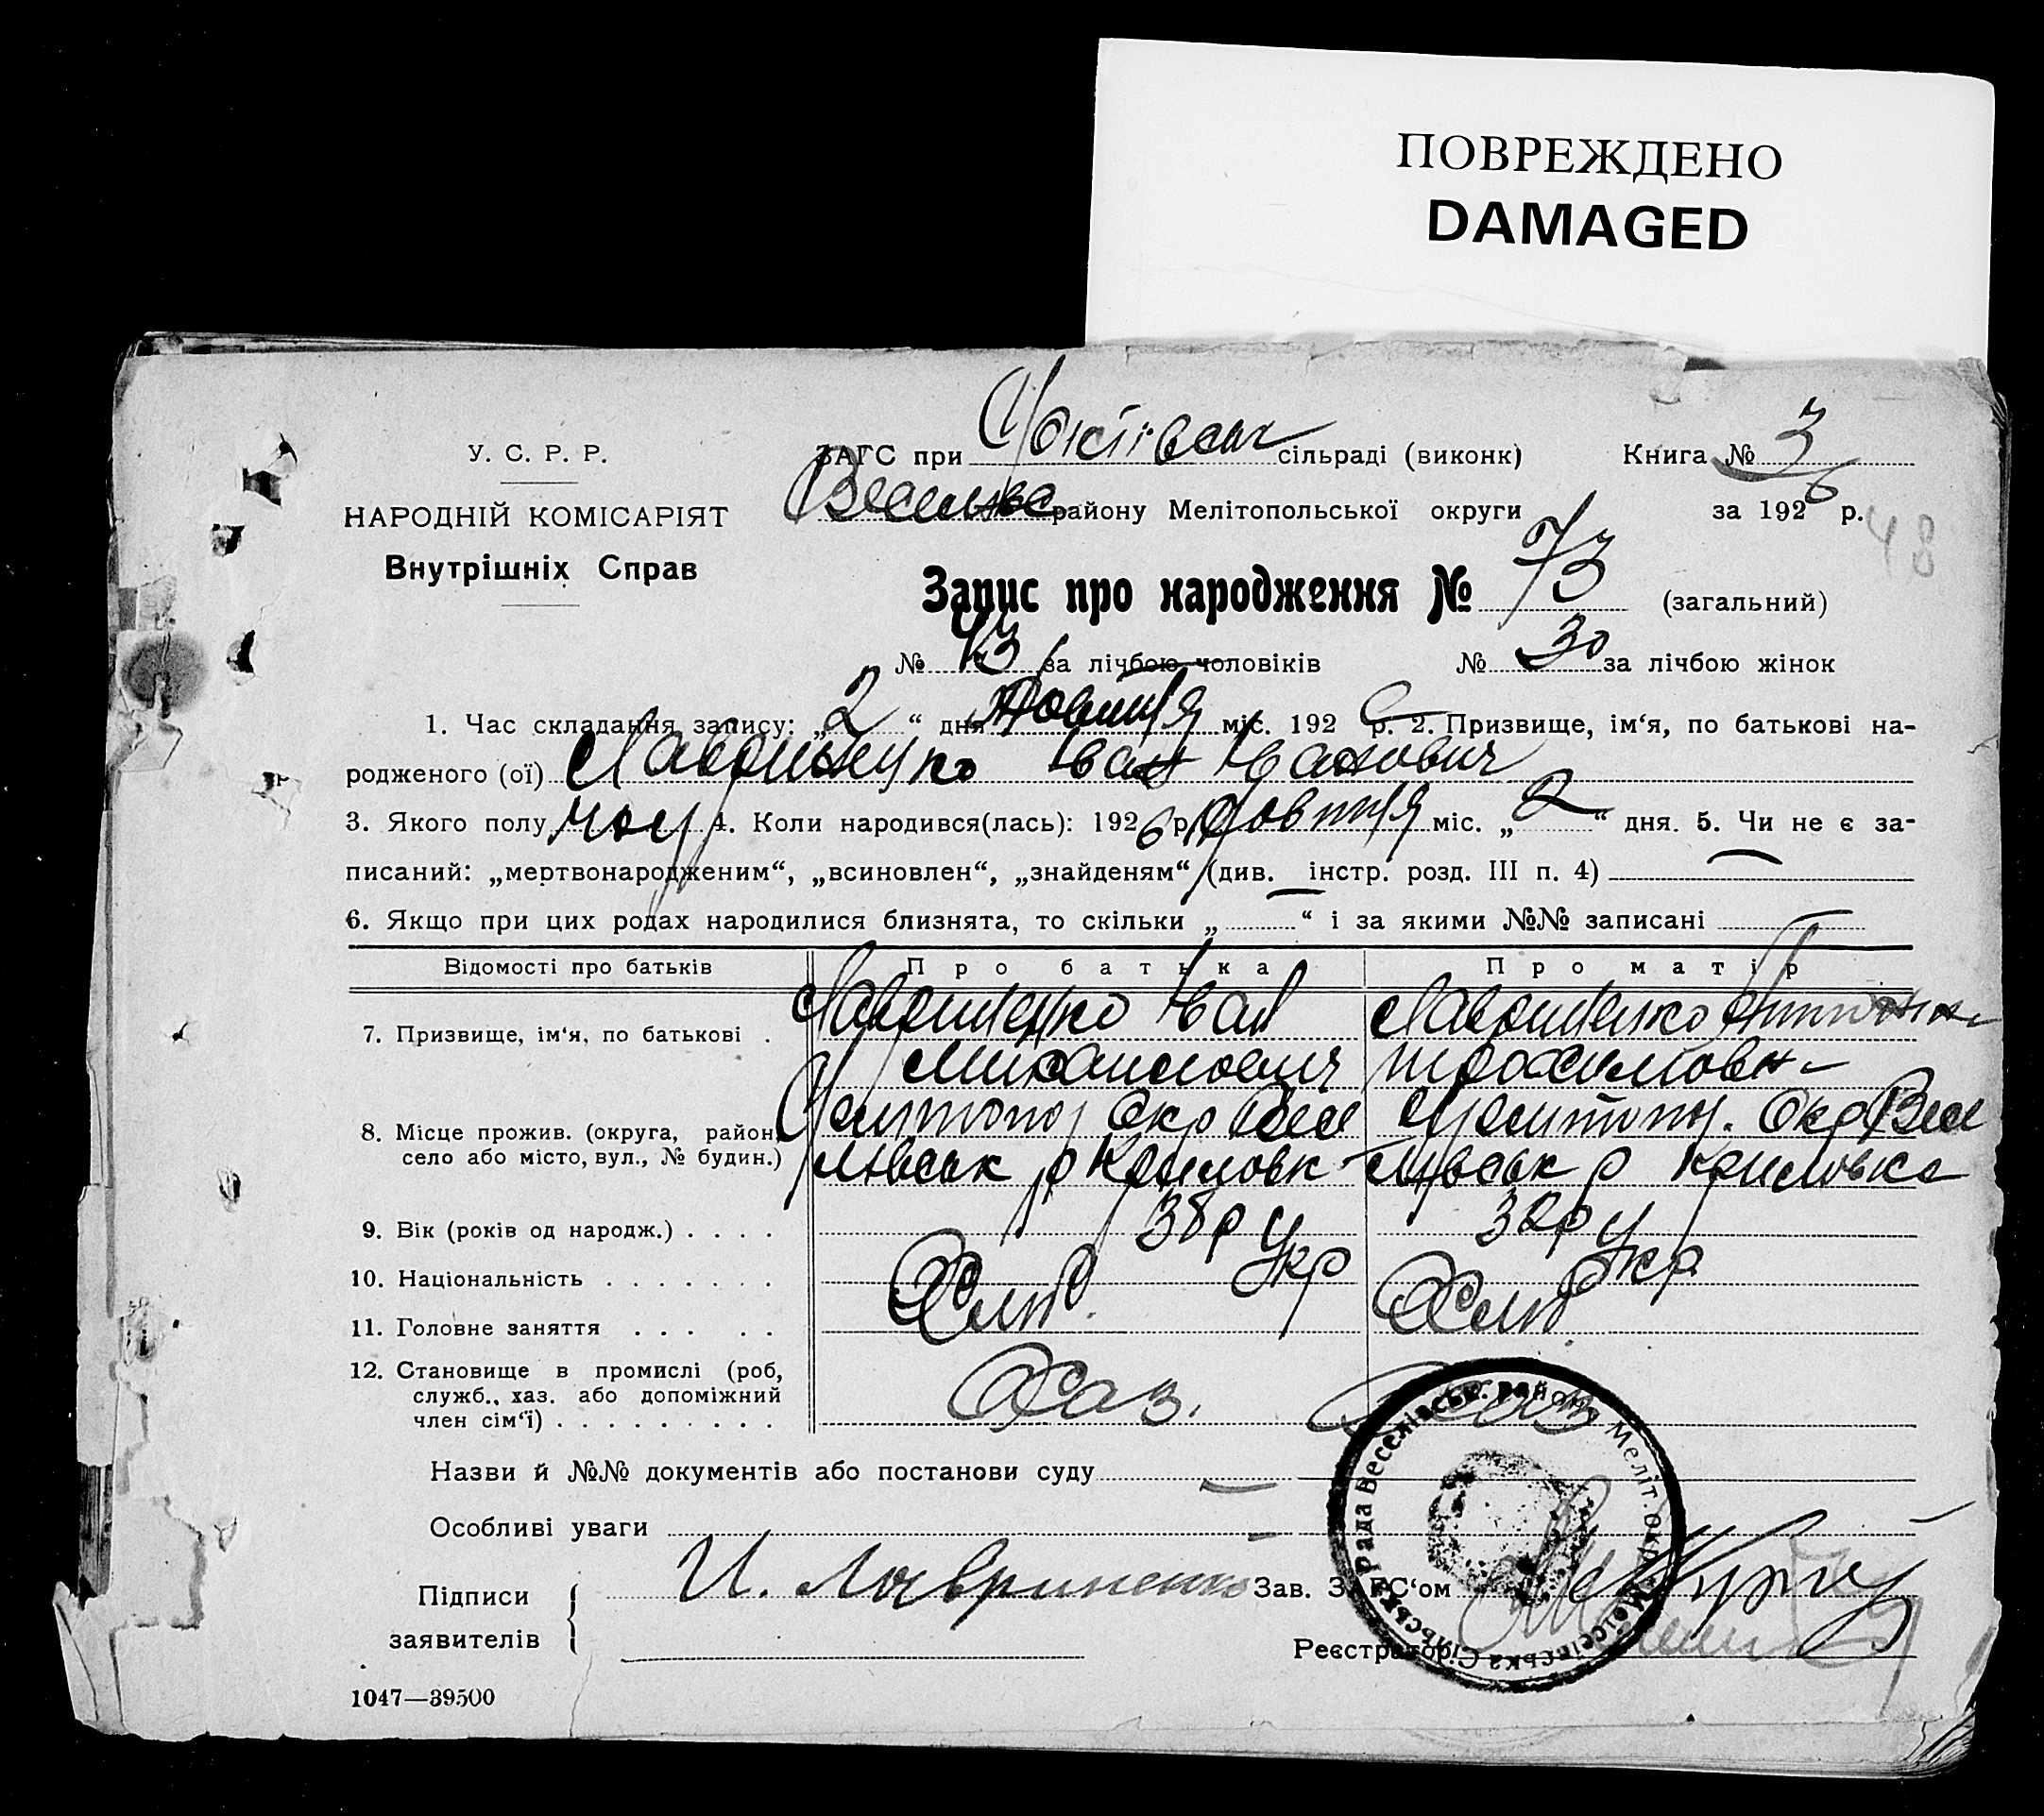 ПОВРЕЖДЕНО
DAMAGED
У. С. Р. Р.
НАРОДНІЙ КОМІСАРІЯТ
Внутрішніх Справ
ЗАГС при сільраді (виконк) Книга № 3
району Мелітопольської округи за 1926 р.
48
Запис про народження № 73 (загальний)
№ 43 за лічбою чоловіків № 30 за лічбою жінок
1. Час складання запису: „2“ дня Жовтня міс. 192 р. 2. Призвище, ім‘я, по батькові на-
родженого (ої) Лавриненко Іван Іванович
3. Якого полу чол 4. Коли народився(лась): 1926 р. Жовтня міс. „2“ дня. 5. Чи не є за-
писаний: „мертвонародженим“, „всиновлен“, „знайденям“ (див. інстр. розд. III п. 4)
6. Якщо при цих родах народилися близнята, то скільки „ “ і за якими №№ записані
Відомості про батьків Про батька Про матір
7. Призвище, ім‘я, по батькові . Лавриненко Іван Лавриненко
Михайлович Трохимовн
8. Місце прожив. (округа, район, село або місто, вул., № будин.) Мелитопол Окр Весе Мелитопол. Окр Весе
лівськ р Криловк лівськ р Криловка
9. Вік (років од народж.) . . . . 38р 32р
10. Національність . . . . . . . Укр Укр
11. Головне заняття . . . . . Хліб. Хліб.
12. Становище в промислі (роб, служб., хаз. або допоміжний член сім‘ї) . . . . . . . . . Хаз.
Назви й №№ документів або постанови суду
Особливі уваги
Підписи заявителів И. Лавриненко Зав. ЗАГС‘ом
Реєстратор
Мойсеївська Сільська Рада Веселівськ. району Меліт. Окр.
1047—39500